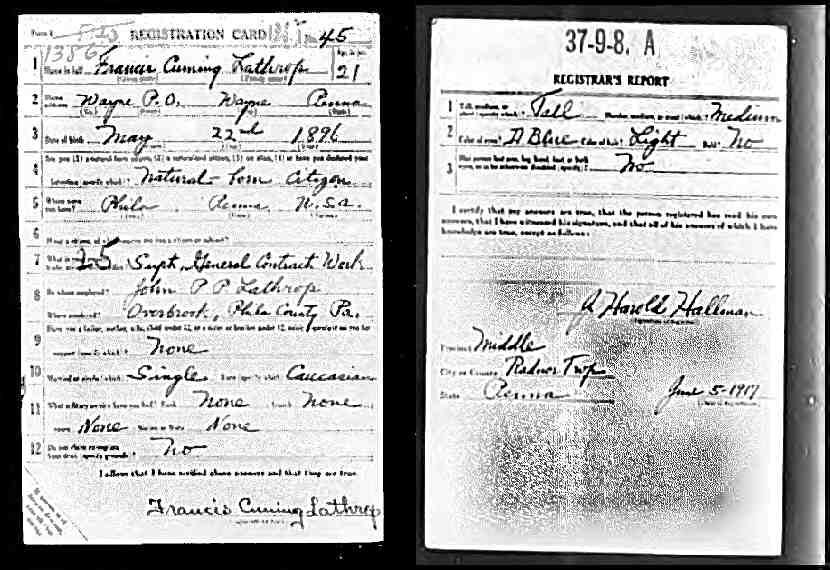 Form 1 REGISTRATION CARD No. 45
1386
1 Name in full Francis Cuming Lathrop Age, in yrs. 21
2 Home address Wayne P.O. Wayne Penna
3 Date of birth May 22nd 1896
4 Are you (1) a natural-born citizen, (2) a naturalized citizen, (3) an alien, (4) or have you declared your
intention (specify which)? Natural-born Citizen
5 Where were you born? Phila. Penna U.S.a.
6 If not a citizen, of what country are you a citizen or subject?
7 Supt. General Contract Work
8 By whom employed? John P P Lathrop
Where employed? Overbrook, Phila County Pa.
9 Have you a father, mother, wife, child under 12, or a sister or brother under 12, solely dependent on you for
support (specify which)? None
10 Married or single (which)? Single Race (specify which)? Caucasian
11 What military service have you had? Rank None branch None
years None Nation or State None
12 Do you claim exemption from draft (specify grounds)? No
I affirm that I have verified above answers and that they are true.
Francis Cuming Lathrop
37-9-8. A
REGISTRAR'S REPORT
1 Tall, medium, or short (specify which)? Tall Slender, medium, or stout (which)? Medium
2 Color of eyes? D Blue Color of hair? Light Bald? No
3 Has person lost arm, leg, hand, foot, or both
eyes, or is he otherwise disabled (specify)? No
I certify that my answers are true, that the person registered has read his own
answers, that I have witnessed his signature, and that all of his answers of which I have
knowledge are true, except as follows:
J Harold Hallman
Precinct Middle
City or County Radnor Twp
State Penna June 5-1917